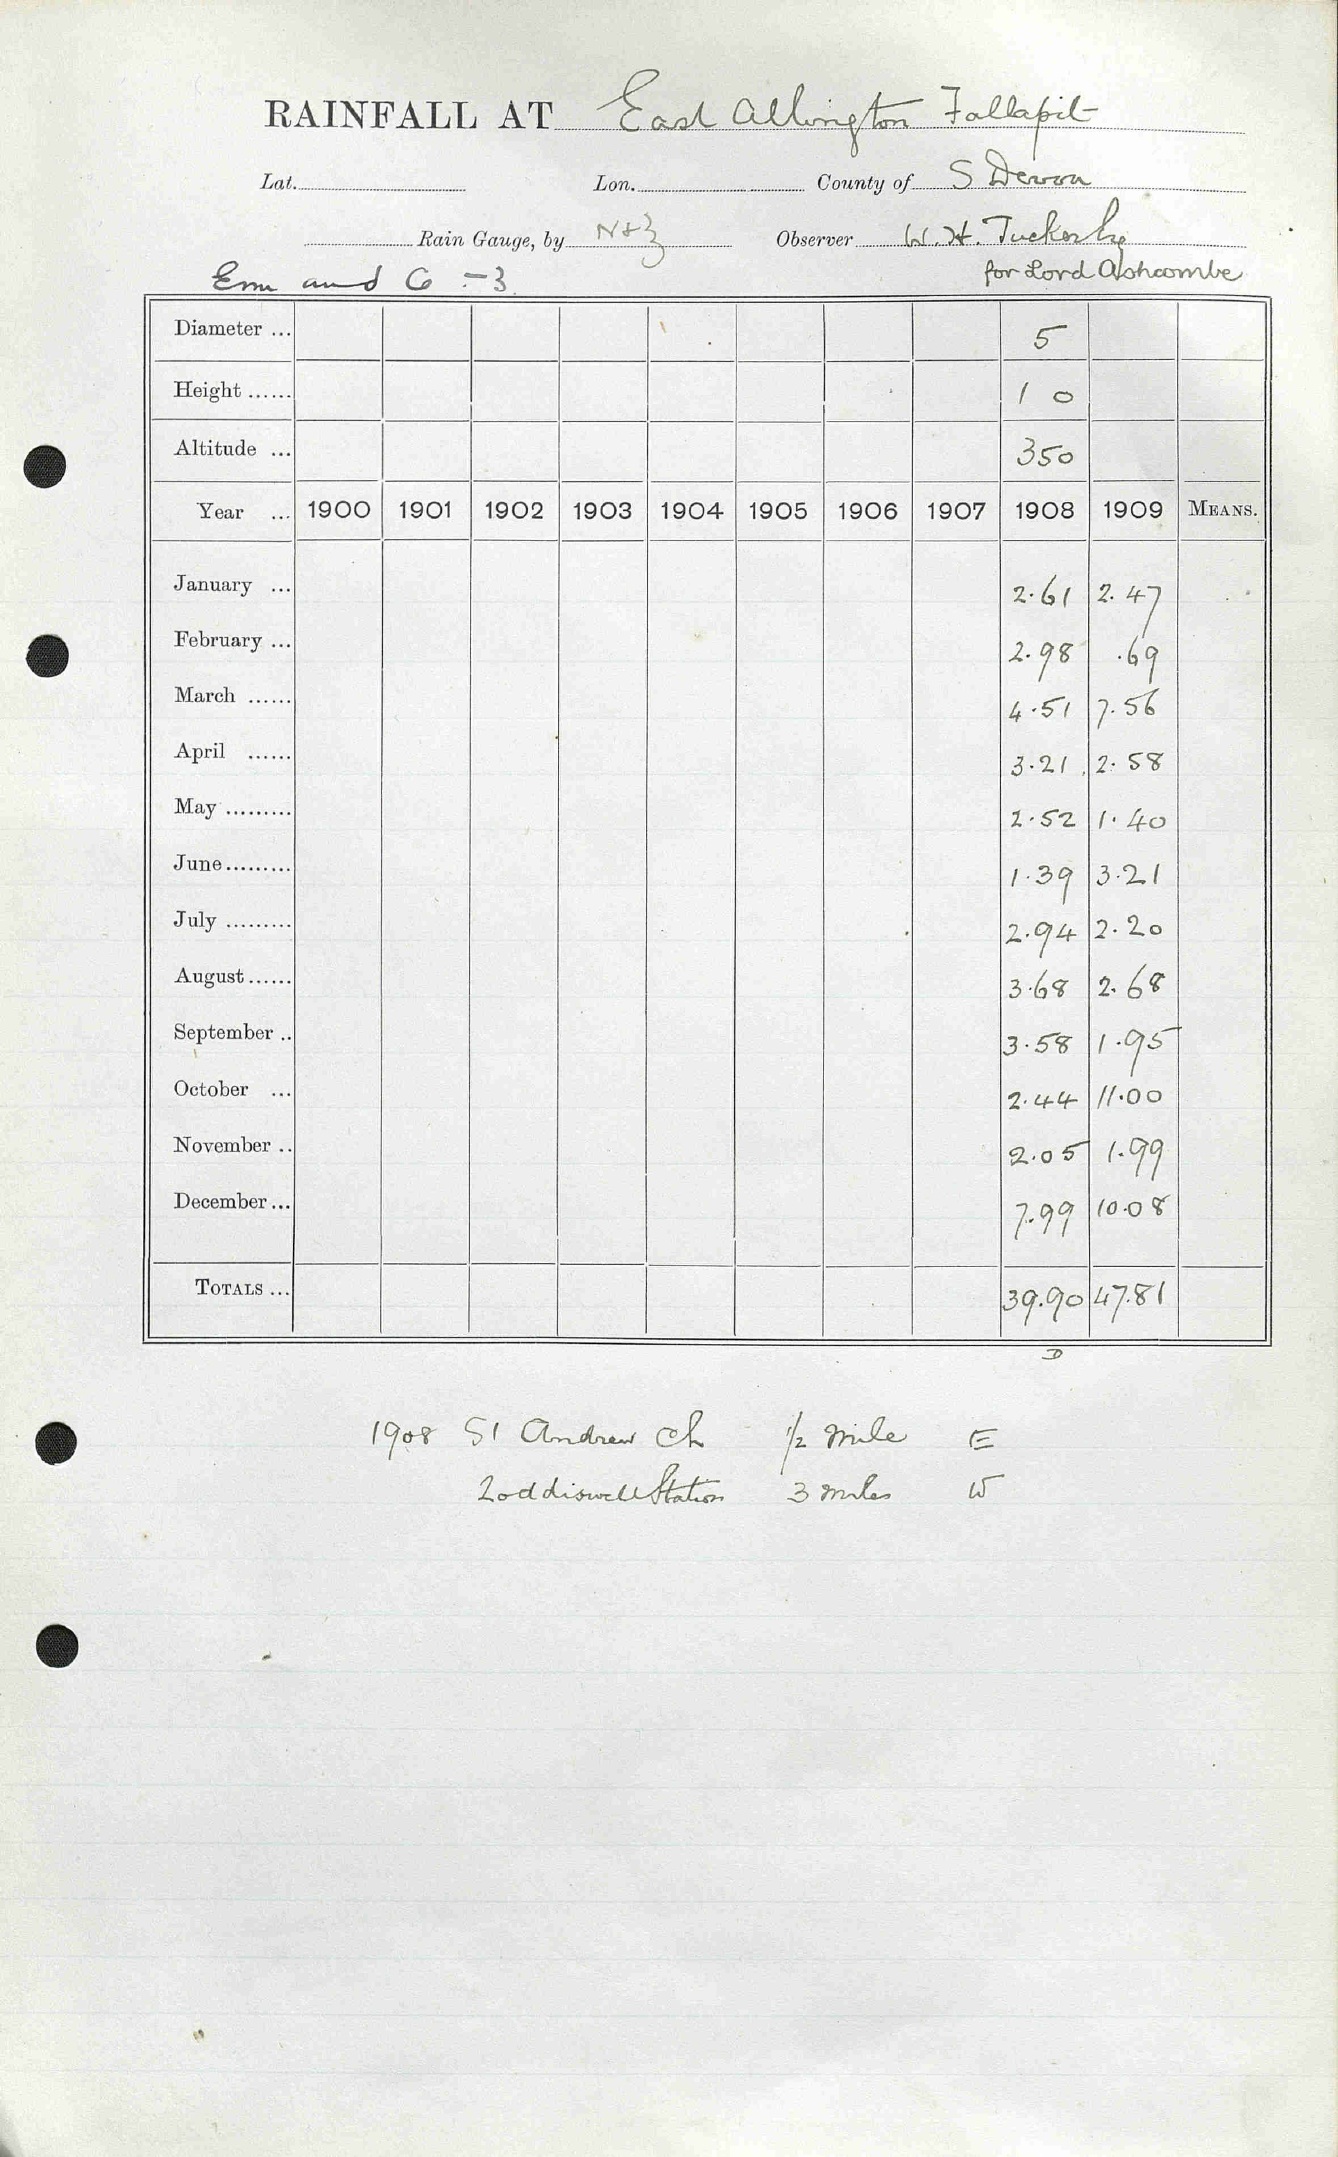 RAINFALL AT East Allington Fallapit
Lat. Lon. County of S Devon
Rain Gauge, by N & Z Observer W. H. Tucker
for Lord Ashcombe
Diameter ... 5
Height ...... 1 0
Altitude ... 350
Year ... 1900 1901 1902 1903 1904 1905 1906 1907 1908 1909 MEANS.
January ... 2.61 2.47
February ... 2.98 .69
March ...... 4.51 7.56
April ...... 3.21 2.58
May ......... 2.52 1.40
June ......... 1.39 3.21
July ......... 2.94 2.20
August ...... 3.68 2.68
September .. 3.58 1.95
October ... 2.44 11.00
November .. 2.05 1.99
December ... 7.99 10.08
TOTALS ... 39.90 47.81
D
1908 St Andrew Ch ½ mile E
Loddiswell Station 3 miles W